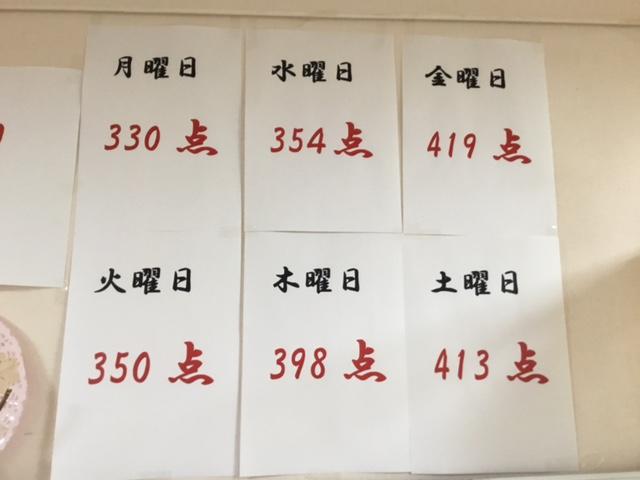 月曜日
330 点
火曜日
350 点
水曜日
354 点
木曜日
398 点
金曜日
419 点
土曜日
413 点